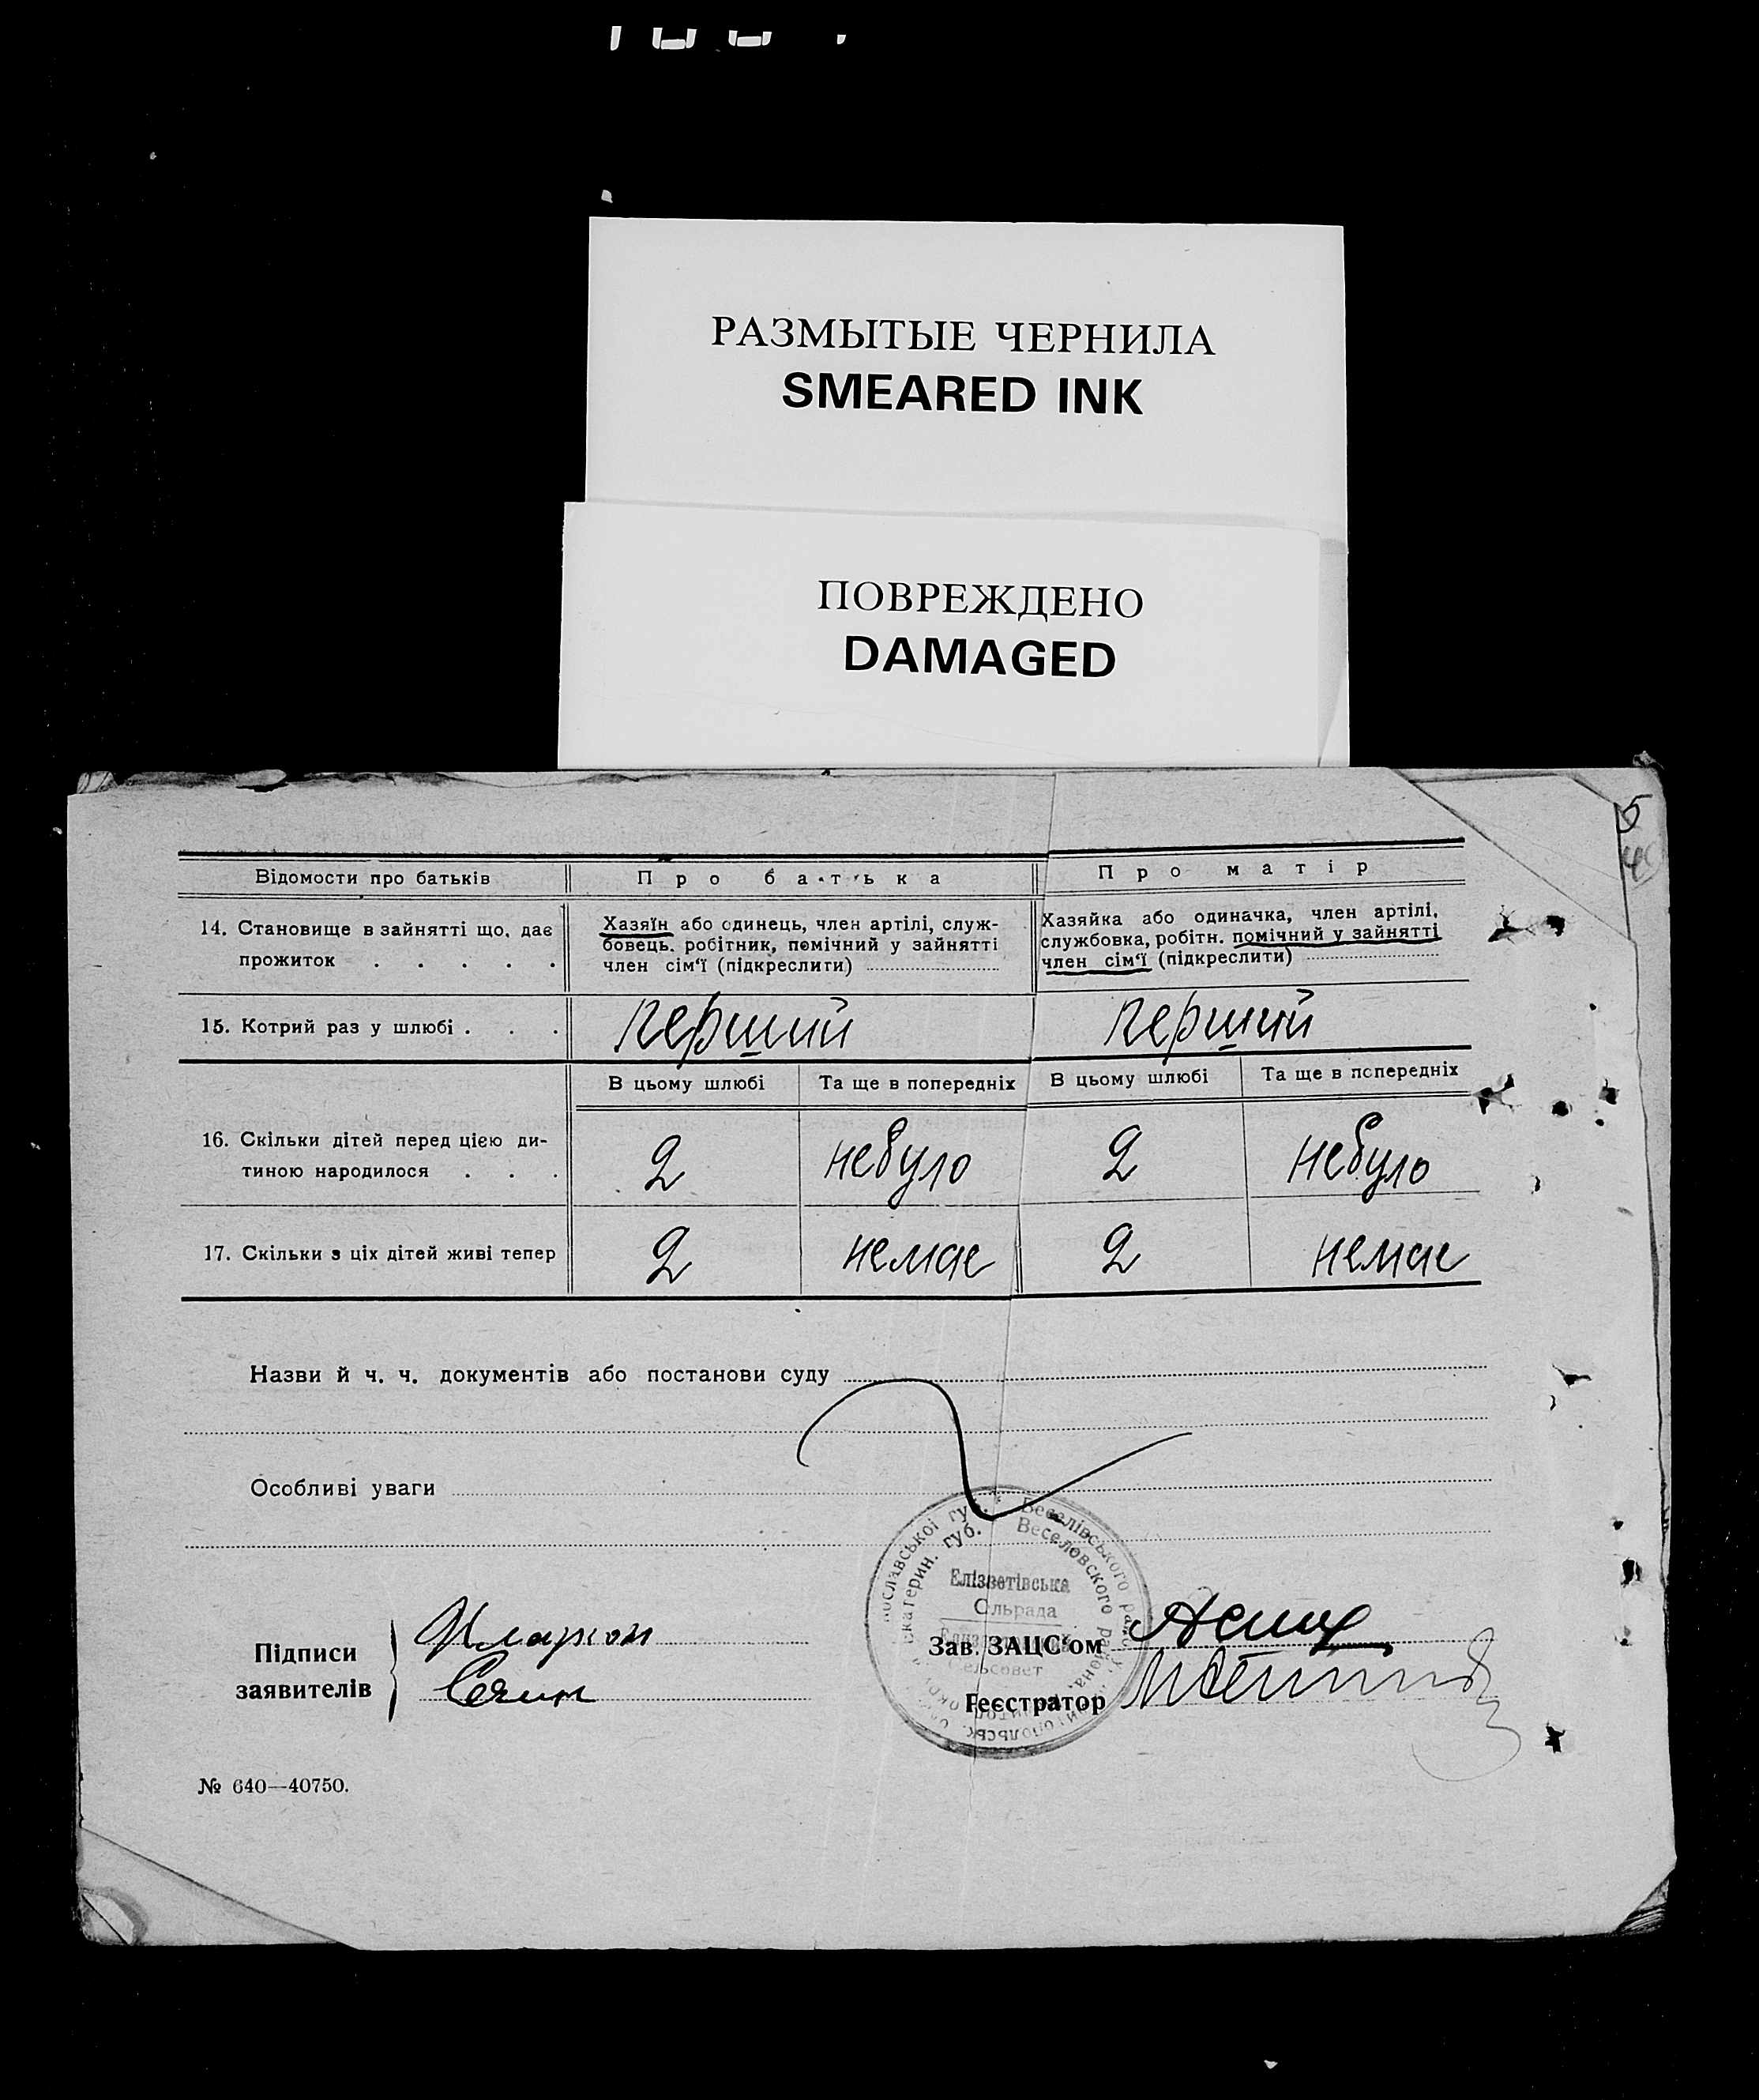 РАЗМЫТЫЕ ЧЕРНИЛА
SMEARED INK
ПОВРЕЖДЕНО
DAMAGED
5
Відомости про батьків
Про батька
Про матір
14. Становище в зайнятті що, дає
прожиток . . . . .
Хазяїн або одинець, член артілі, служ-
бовець. робітник, помічний у зайнятті
член сім'ї (підкреслити)
Хазяйка або одиначка, член артілі,
службовка, робітн. помічний у зайнятті
член сім'ї (підкреслити)
15. Котрий раз у шлюбі . . .
перший
перший
В цьому шлюбі
Та ще в попередніх
В цьому шлюбі
Та ще в попередніх
16. Скільки дітей перед цією ди-
тиною народилося . . .
2
небуло
2
небуло
17. Скільки з ціх дітей живі тепер
2
немає
2
немає
Назви й ч. ч. документів або постанови суду
Особливі уваги
Веселівського
Веселовского района
Катерин. губ.
Елізветівська
Сільрада
Сельсовет
Підписи
заявителів
Зав. ЗАЦС'ом
Реєстратор
№ 640—40750.